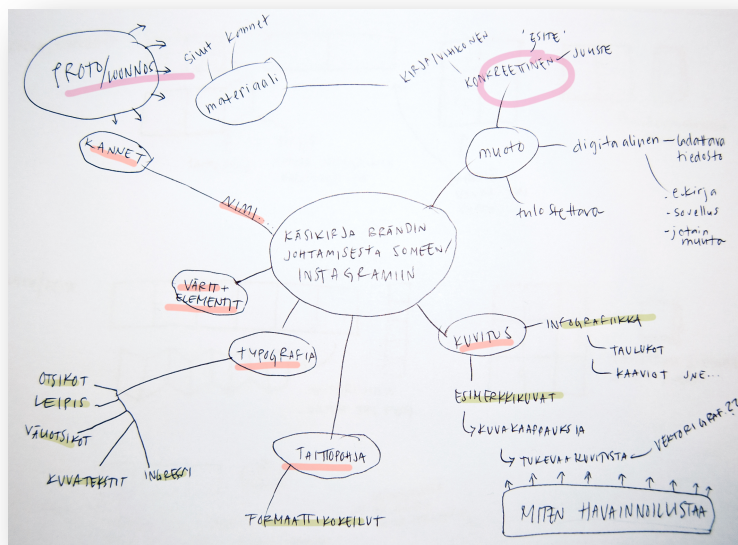 PROTO/LUONNOS
sivut kannet
materiaali
KIRJA/VIHKONEN
"ESITE"
KONKREETTINEN
JULISTE
muoto
digitaalinen
ladattava
tiedosto
e-kirja
- sovellus
- jotain
muuta
tulostettava
KANNET
NIMI
KÄSIKIRJA BRÄNDIN
JOHTAMISESTA SOMEEN/
INSTAGRAMIIN
VÄRIT +
ELEMENTIT
TYPOGRAFIA
OTSIKOT
LEIPIS
VÄLIOTSIKOT
KUVATEKSTIT
INGRESSI
TAITTOPOHJA
FORMAATTIKOKEILUT
KUVITUS
INFOGRAFIIKKA
TAULUKOT
KAAVIOT JNE...
ESIMERKKIKUVAT
KUVAKAAPPAUKSIA
TUKEVAA KUVITUSTA
VEKTORIGRAF.??
MITEN HAVAINNOLLISTAA